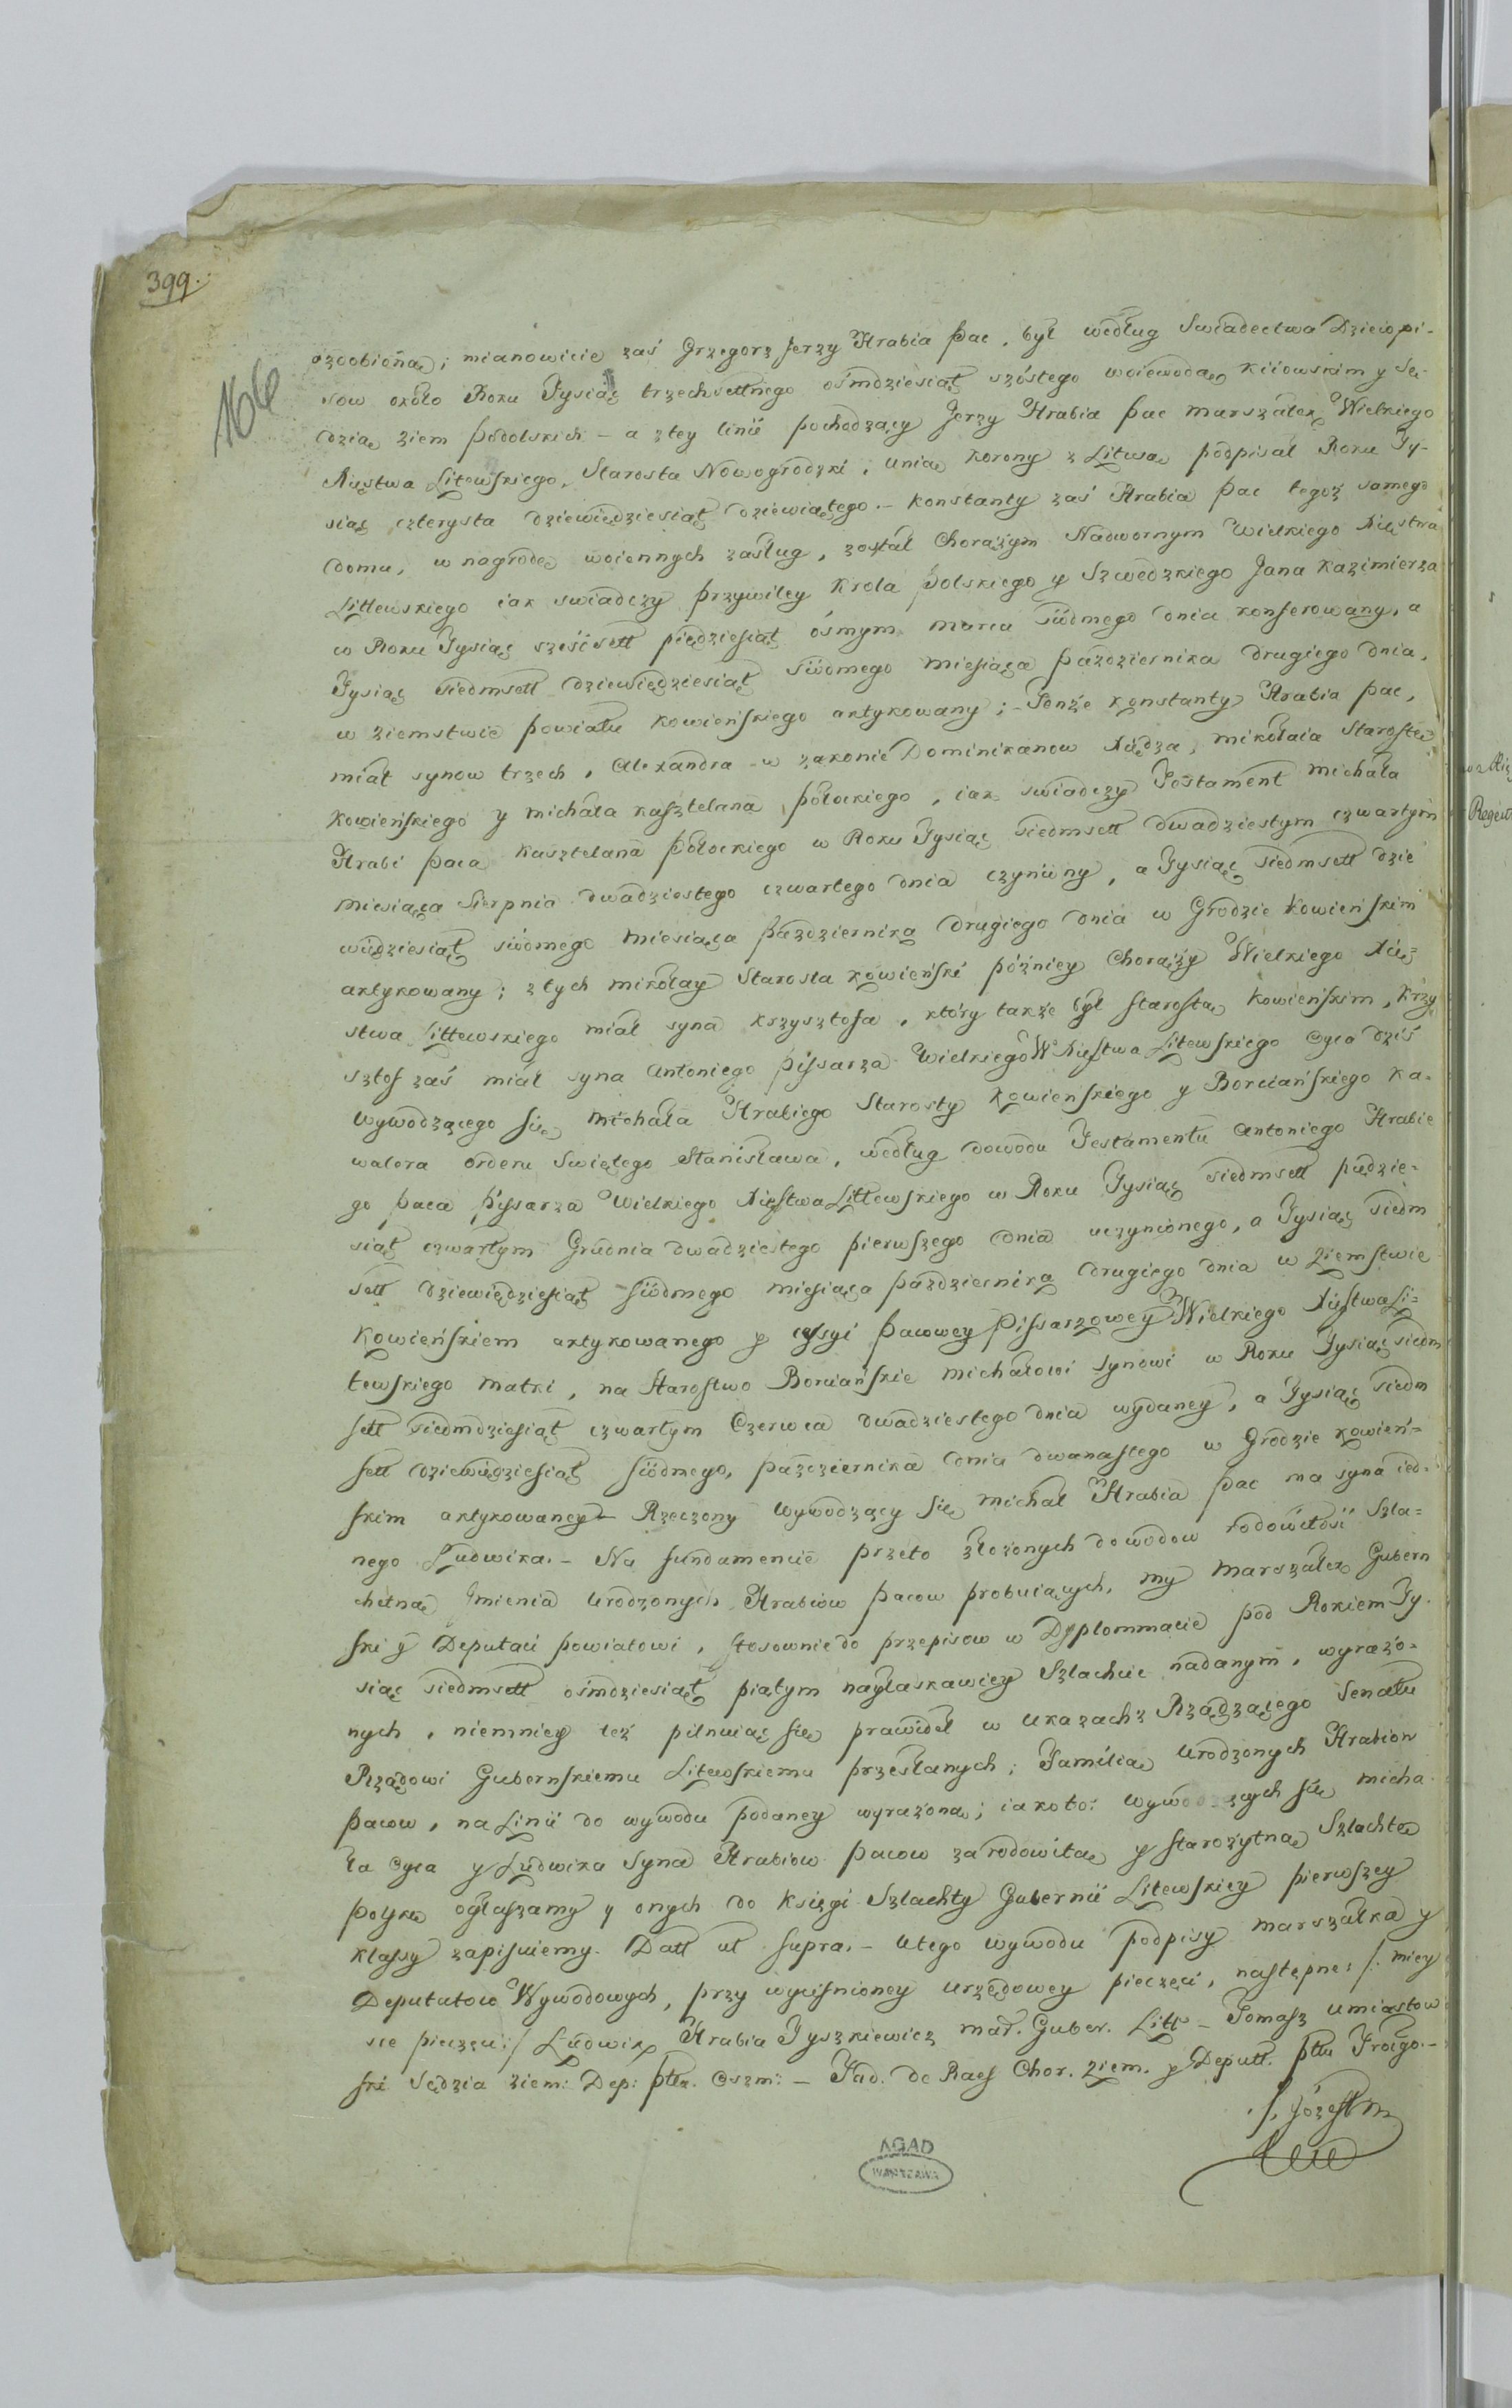 399.
166
ozdobiona; mianowicie zaś Grzegorz Jerzy Hrabia Pac, był według Swiadectwa Dzieiopi-
sow około Roku Tysiąc trzechsettnego ośmdziesiąt szóstego woiewodą Kiiowskim y Sę-
dzią ziem Podolskich - a z tey linii pochodzący Jerzy Hrabia Pac Marszałek Wielkiego
Xięstwa Litewskiego, Starosta Nowogrodzki, unią Korony z Litwą podpisał Roku Ty-
siąc czterysta dziewiędziesiąt dziewiątego. - Konstanty zaś Hrabia Pac tegoż samego
domu, w nagrodę woiennych zasług, został Chorążym Nadwornym Wielkiego Xięstwa
Littewskiego iak swiadczy przywiley Krola Polskiego y Szwedzkiego Jana Kazimierza
w Roku Tysiąc sześćsett piędziesiąt ósmym marca siódmego dnia konferowany, a
Tysiąc siedmsett dziewiędziesiąt siódmego miesiąca Pazdziernika drugiego dnia,
w ziemstwie Powiatu Kowieńskiego aktykowany; - Tenże Konstanty Hrabia Pac,
miał synow trzech, Alexandra w zakonie Dominikanow Xiędza, Mikołaia Starostę
Kowieńskiego y Michała Kasztelana Połockiego, iak swiadczy Testament Michała
Hrabi Paca Kasztelana Połockiego w Roku Tysiąc siedmsett dwadziestym czwartym
miesiąca Sierpnia dwadziestego czwartego dnia czyniony, a Tysiąc siedmsett dzie
więdziesiąt siódmego miesiąca Pazdziernika drugiego dnia w Grodzie Kowieńskim
aktykowany; z tych Mikołay Starosta Kowieński późniey Chorąży Wielkiego Xię=
stwa Littewskiego miał syna Krzysztofa, który także był Starostą Kowieńskim, Krzy
sztof zaś miał syna Antoniego Pissarza Wielkiego W Xięstwa Litewskiego Oyca dziś
wywodzącego się Michała Hrabiego Starosty Kowieńskiego y Borciańskiego Ka-
walera Orderu Swiętego Stanisława, według dowodu Testamentu Antoniego Hrabie
go Paca Pissarza Wielkiego Xięstwa Littewskiego w Roku Tysiąc siedmsett pięдzie=
siąt czwartym Grudnia dwadziestego pierwszego dnia uczynionego, a Tysiąc siedm
sett dziewiędziesiąt siódmego miesiąca Pazdziernika drugiego dnia w Ziemstwie
Kowieńskiem aktykowanego y cessyi Pacowey Pissarzowey Wielkiego Xięstwa Li=
tewskiego Matki, na Starostwo Borciańskie Michałowi Synowi w Roku Tysiąc siedm
sett siedmdziesiąt czwartym Czerwca dwadziestego dnia wydaney, a Tysiąc siedm
sett dziewiędziesiąt siódmego, Pazdziernika dnia dwanastego w Grodzie Kowień=
skim aktykowaney - Rzeczony wywodzący się Michał Hrabia Pac ma syna ied-
nego Ludwika. - Na fundamencie przeto złożonych dowodow rodowitość Szla=
chetną Jmienia Urodzonych Hrabiow Pacow probuiących, my Marszałek Gubern
ski y Deputaci Powiatowi, stosownie do przepisow w Dyplommacie pod Rokiem Ty-
siąc siedmsett ośmdziesiąt piątym naylaskawiey Szlachcie nadanym, wyrażo-
nych, niemniey też pilnuiąc się prawideł w ukazach z Rządzącego Senatu
Rządowi Gubernskiemu Litewskiemu przesłanych; Familią Urodzonych Hrabiow
Pacow, na Linii do wywodu podaney wyrażoną; iako to: wywodzących się Micha
ła Oyca y Ludwika Syna Hrabiow Pacow za rodowitą y starożytną Szlachtę
Polską ogłaszamy y onych do Xięgi Szlachty Gubernii Litewskiey pierwszey
klassy zapisuiemy. Datt ut supra. - U tego wywodu podpisy Marszałka y
Deputatow Wywodowych, przy wyciśnioney urzędowey pieczęci, następne: /: miey
sce pieczęci :/ Ludwik Hrabia Tyszkiewicz Mar. Guber. Litt - Tomasz Umiastow
ski Sędzia ziem: Dep: Pttu. Oszm: - Tad. de Raes Chor. Ziem. y Deputt. Pttu Trockgo. -
/. Józef
AGAD
WARSZAWA